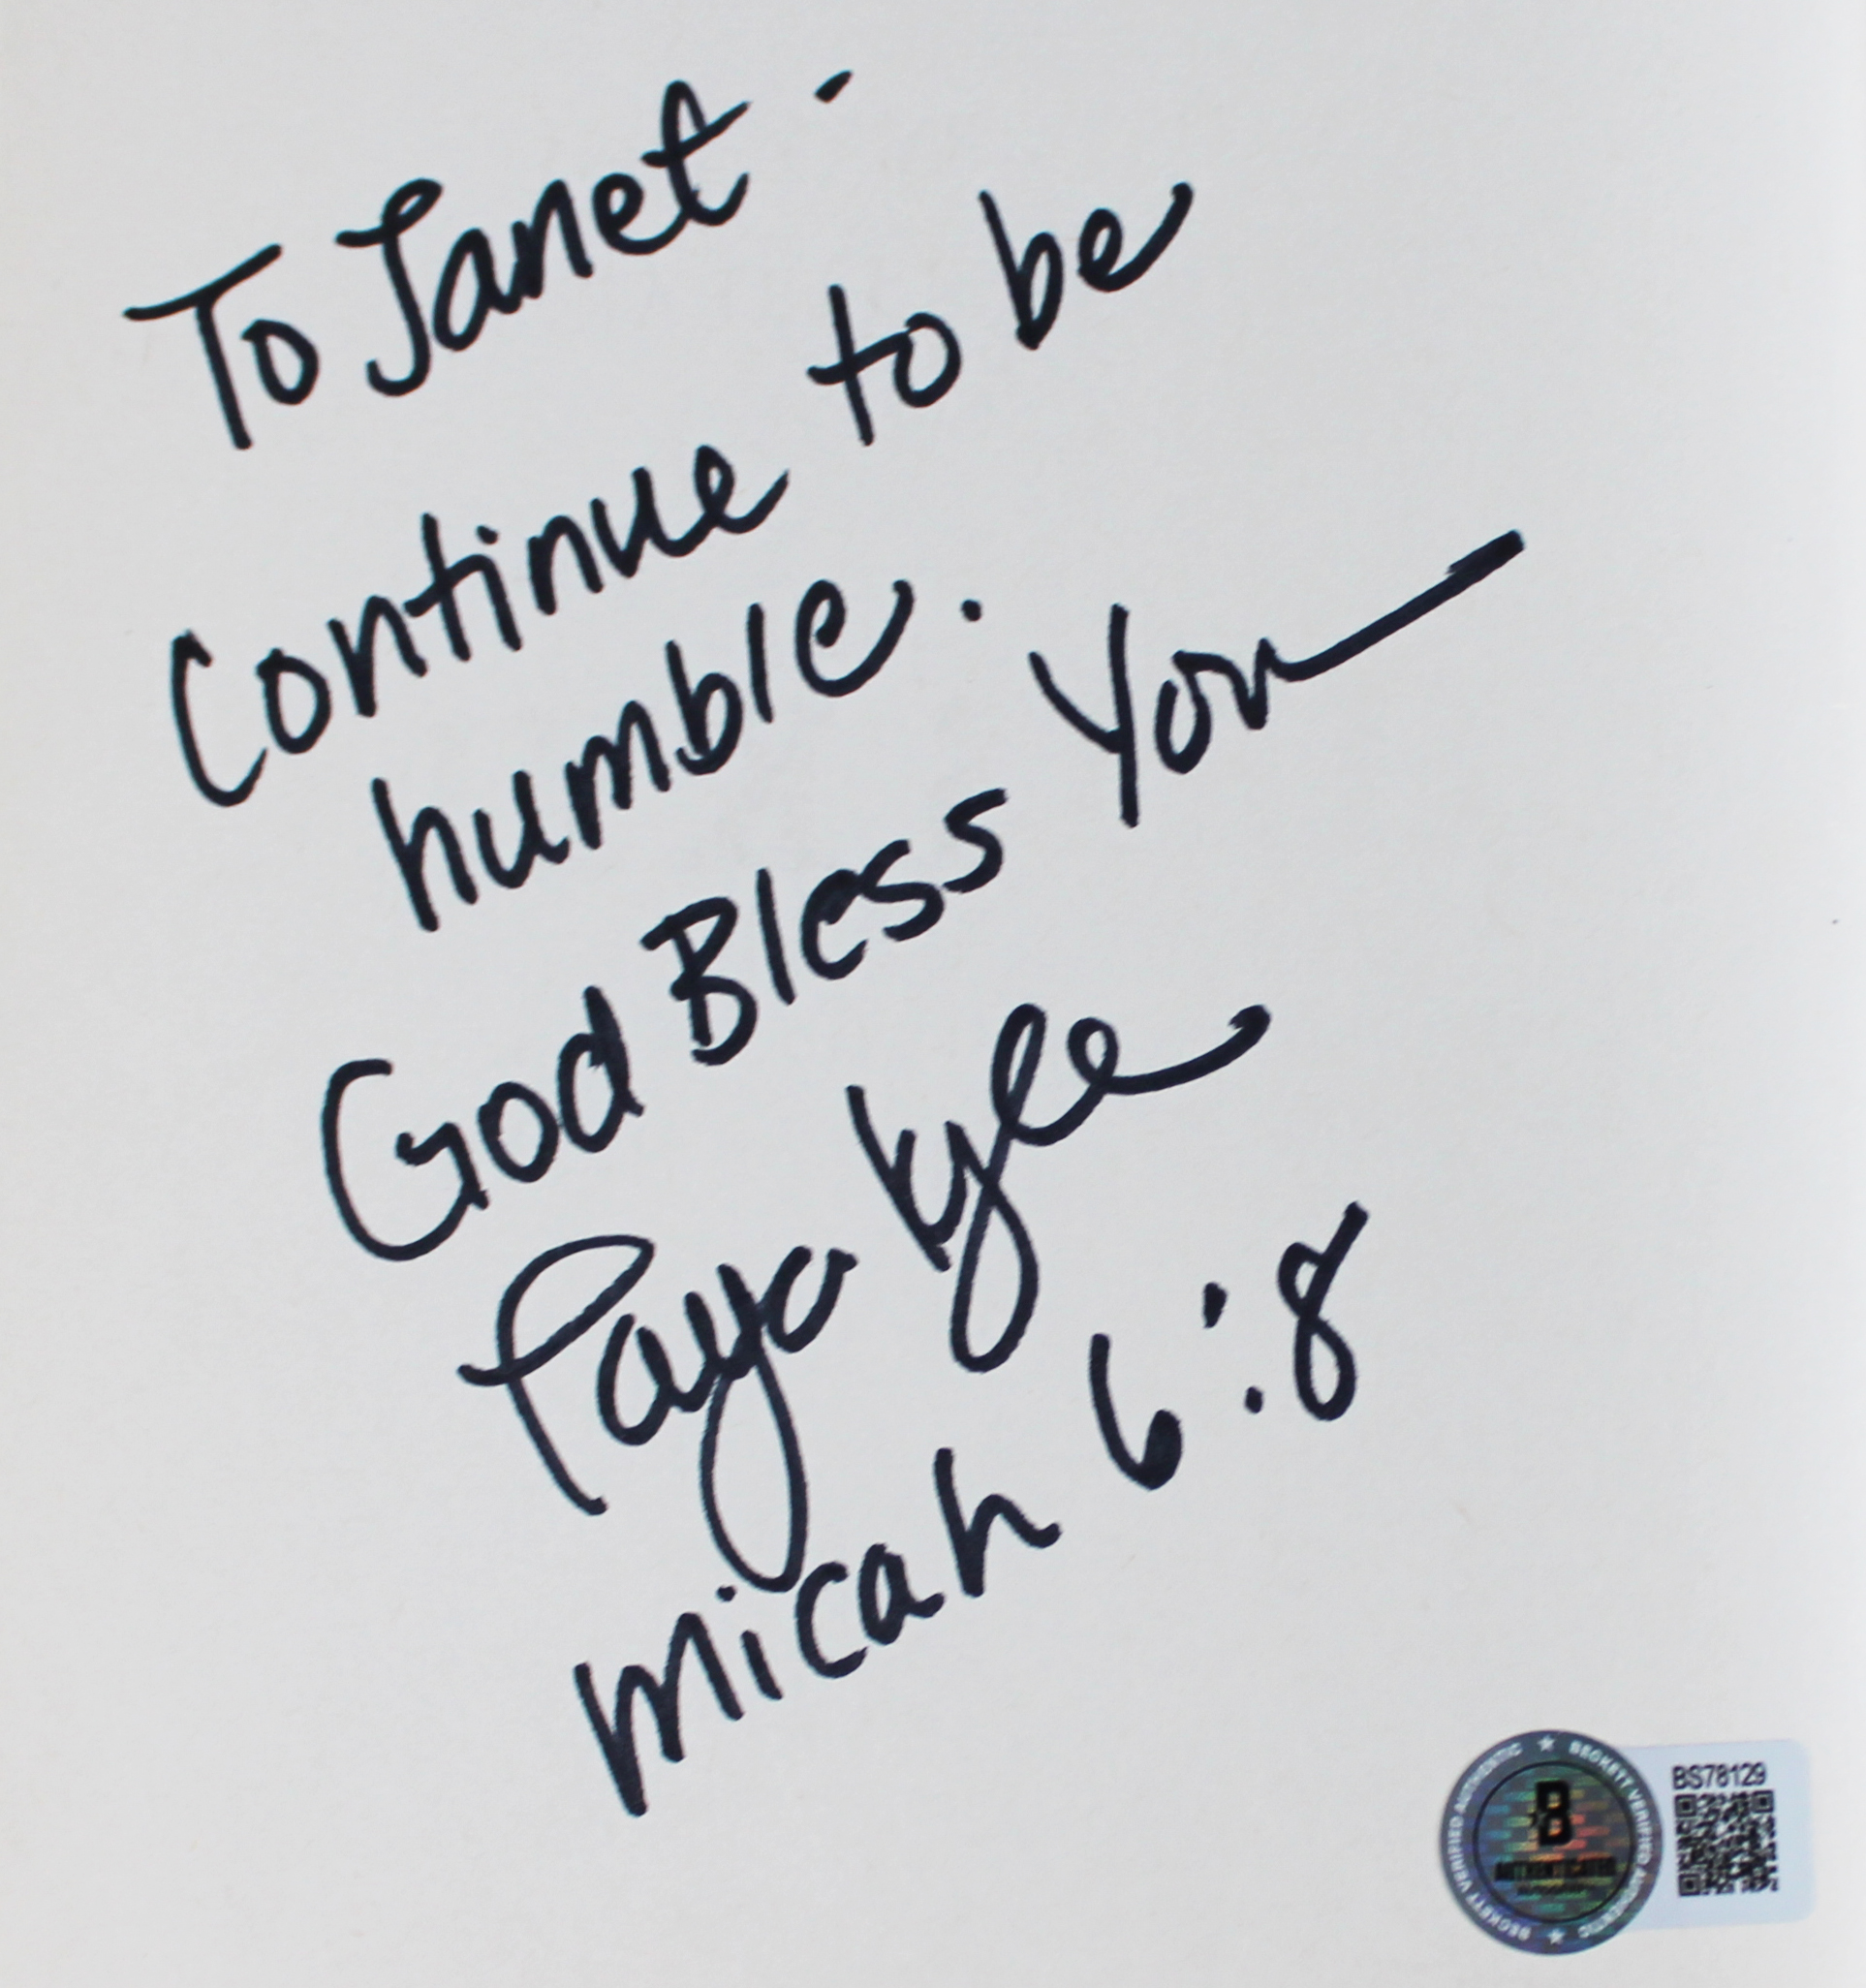 To Janet -
Continue to be
humble.
God Bless You
Taya Kyle
Micah 6:8
BS78129
BECKETT VERIFIED AUTHENTIC ★ BECKETT VERIFIED AUTHENTIC ★
B
AUTHENTICATED